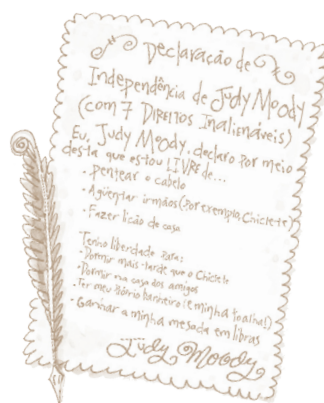 Declaração de
Independência de Judy Moody
(com 7 Direitos Inalináveis)
Eu, Judy Moody, declaro por meio
desta que estou LIVRE de...
· Pentear o cabelo
· Agüentar irmãos (Por exemplo, Chiclete)
· Fazer lição de casa
Tenho liberdade para:
· Dormir mais tarde que o Chiclete
· Dormir na casa dos amigos
· Ter meu próprio banheiro (e minha toalha!)
· Ganhar a minha mesada em libras
Judy Moody